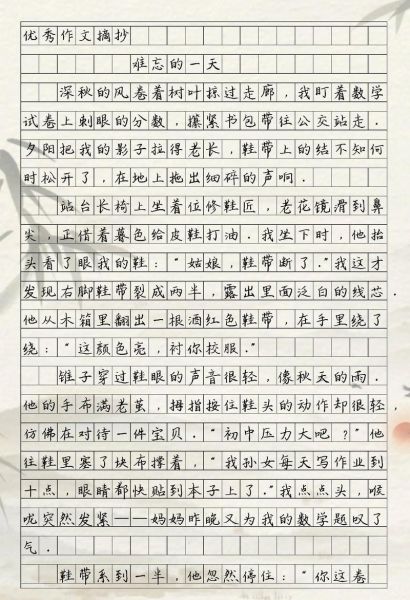 优秀作文摘抄
难忘的一天
深秋的风卷着树叶掠过走廊，我盯着数学
试卷上刺眼的分数，攥紧书包带往公交站走．
夕阳把我的影子拉得老长，鞋带上的结不知何
时松开了，在地上拖出细碎的声响．
站台长椅上坐着位修鞋匠，老花镜滑到鼻
尖，正借着暮色给皮鞋打油．我坐下时，他抬
头看了眼我的鞋：“姑娘，鞋带断了．”我这才
发现右脚鞋带裂成两半，露出里面泛白的线芯．
他从木箱里翻出一根酒红色鞋带，在手里绕了
绕：“这颜色亮，衬你校服．”
锥子穿过鞋眼的声音很轻，像秋天的雨．
他的手布满老茧，拇指按住鞋头的动作却很轻，
仿佛在对待一件宝贝．“初中压力大吧？”他
往鞋里塞了块布撑着，“我孙女每天写作业到
十点，眼睛都快贴到本子上了．”我点点头，喉
咙突然发紧——妈妈昨晚又为我的数学题叹了
气．
鞋带系到一半，他忽然停住：“你这卷